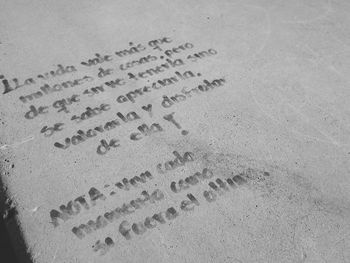 La vida vale más que
millones de cosas, pero
de que sirve tenerla sino
se sabe apreciarla,
valorarla y disfrutar
de ella!
NOTA: Vive cada
momento como
si fuera el último.